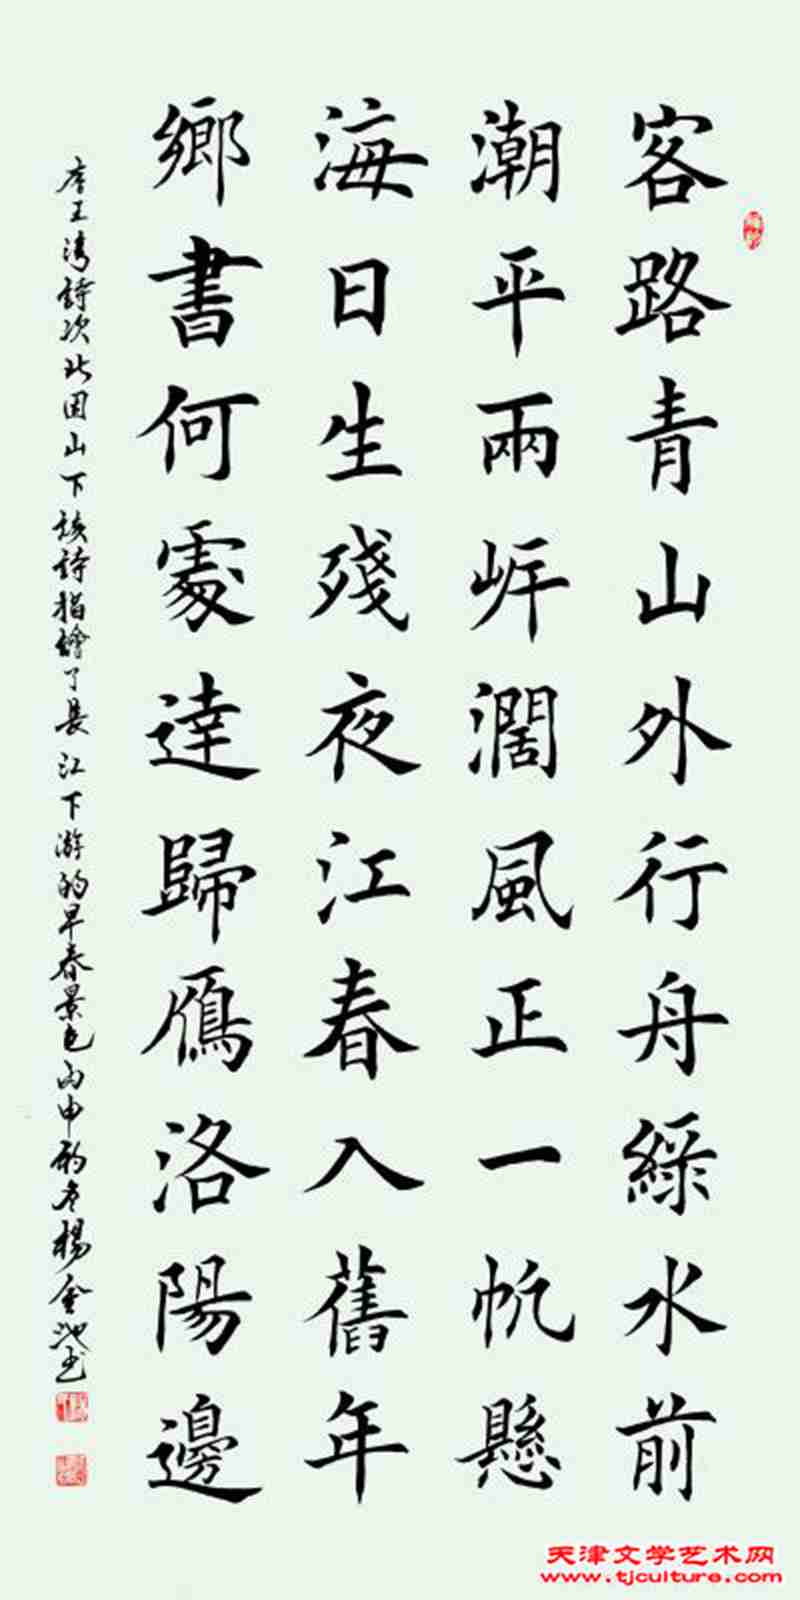 客路青山外行舟綠水前
潮平兩岸濶風正一帆懸
海日生殘夜江春入舊年
鄉書何處達歸鴈洛陽邊
唐王灣詩次北固山下該詩描繪了長江下游的早春景色丙申初冬楊金池书
天津文学艺术网
www.tjculture.com